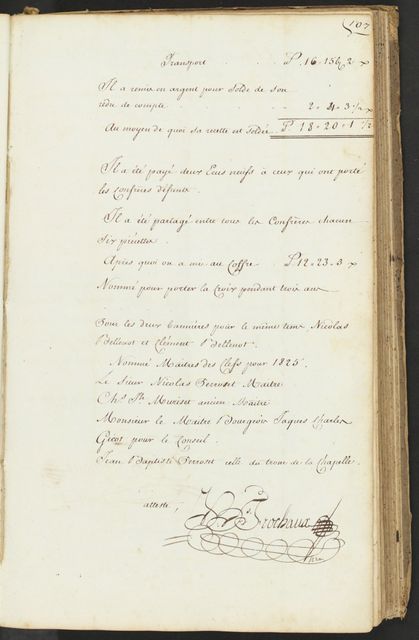 107
Transport P. 16-15½ 2 x
Il a remis en argent pour solde de son
rédu de compte 2-4-3 ½ x
Au moyen de quoi sa recette est soldée P 18-20-1 ½
Il a été payé deux Ecus neufs à ceux qui ont porté
les confrères défunts.
Il a été partagé entre tous les Confrères chacun
six piécettes.
Après quoi on a mis au Coffre P 12-23-3 x
Nommé pour porter la Croix pendant trois ans
Pour les deux bannières pour le même tems Nicolas
Bellenot et Clément Bellenot.
Nommé Maitres des Clefs pour 1825.
Le Sieur Nicolas Perroset Maitre
Ch.s Pte Muriset ancien Maitre
Monsieur le Maitre Bourgeois Jaques Charles
Gicot pour le Conseil.
Jean Baptiste Perroset celle du tronc de la Chapelle.
atteste,
Frochaux